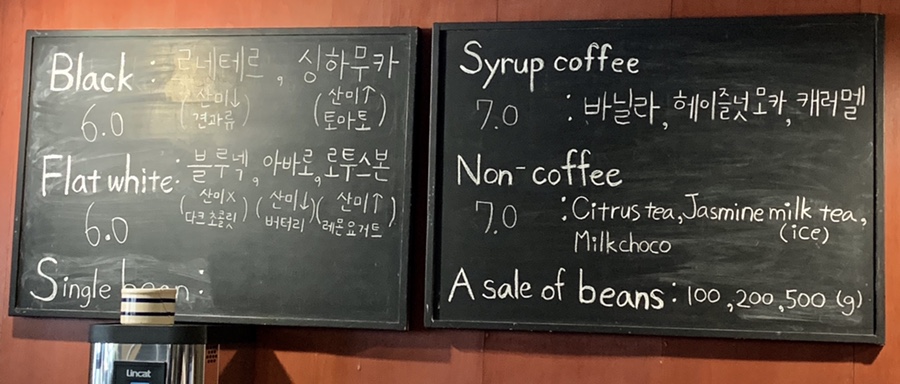 Black : 르네테르, 싱하무카
6.0 (산미↓ 견과류) (산미↑ 토마토)
Flat white: 블루넥, 아바로, 로투스본
6.0 (산미x 다크초콜릿) (산미↓ 버터리) (산미↑ 레몬요거트)
Single bean :
Lincat
Syrup coffee
7.0 : 바닐라, 헤이즐넛모카, 캐러멜
Non-coffee
7.0 : Citrus tea, Jasmine milk tea,
(ice)
Milkchoco
A sale of beans : 100, 200, 500 (g)